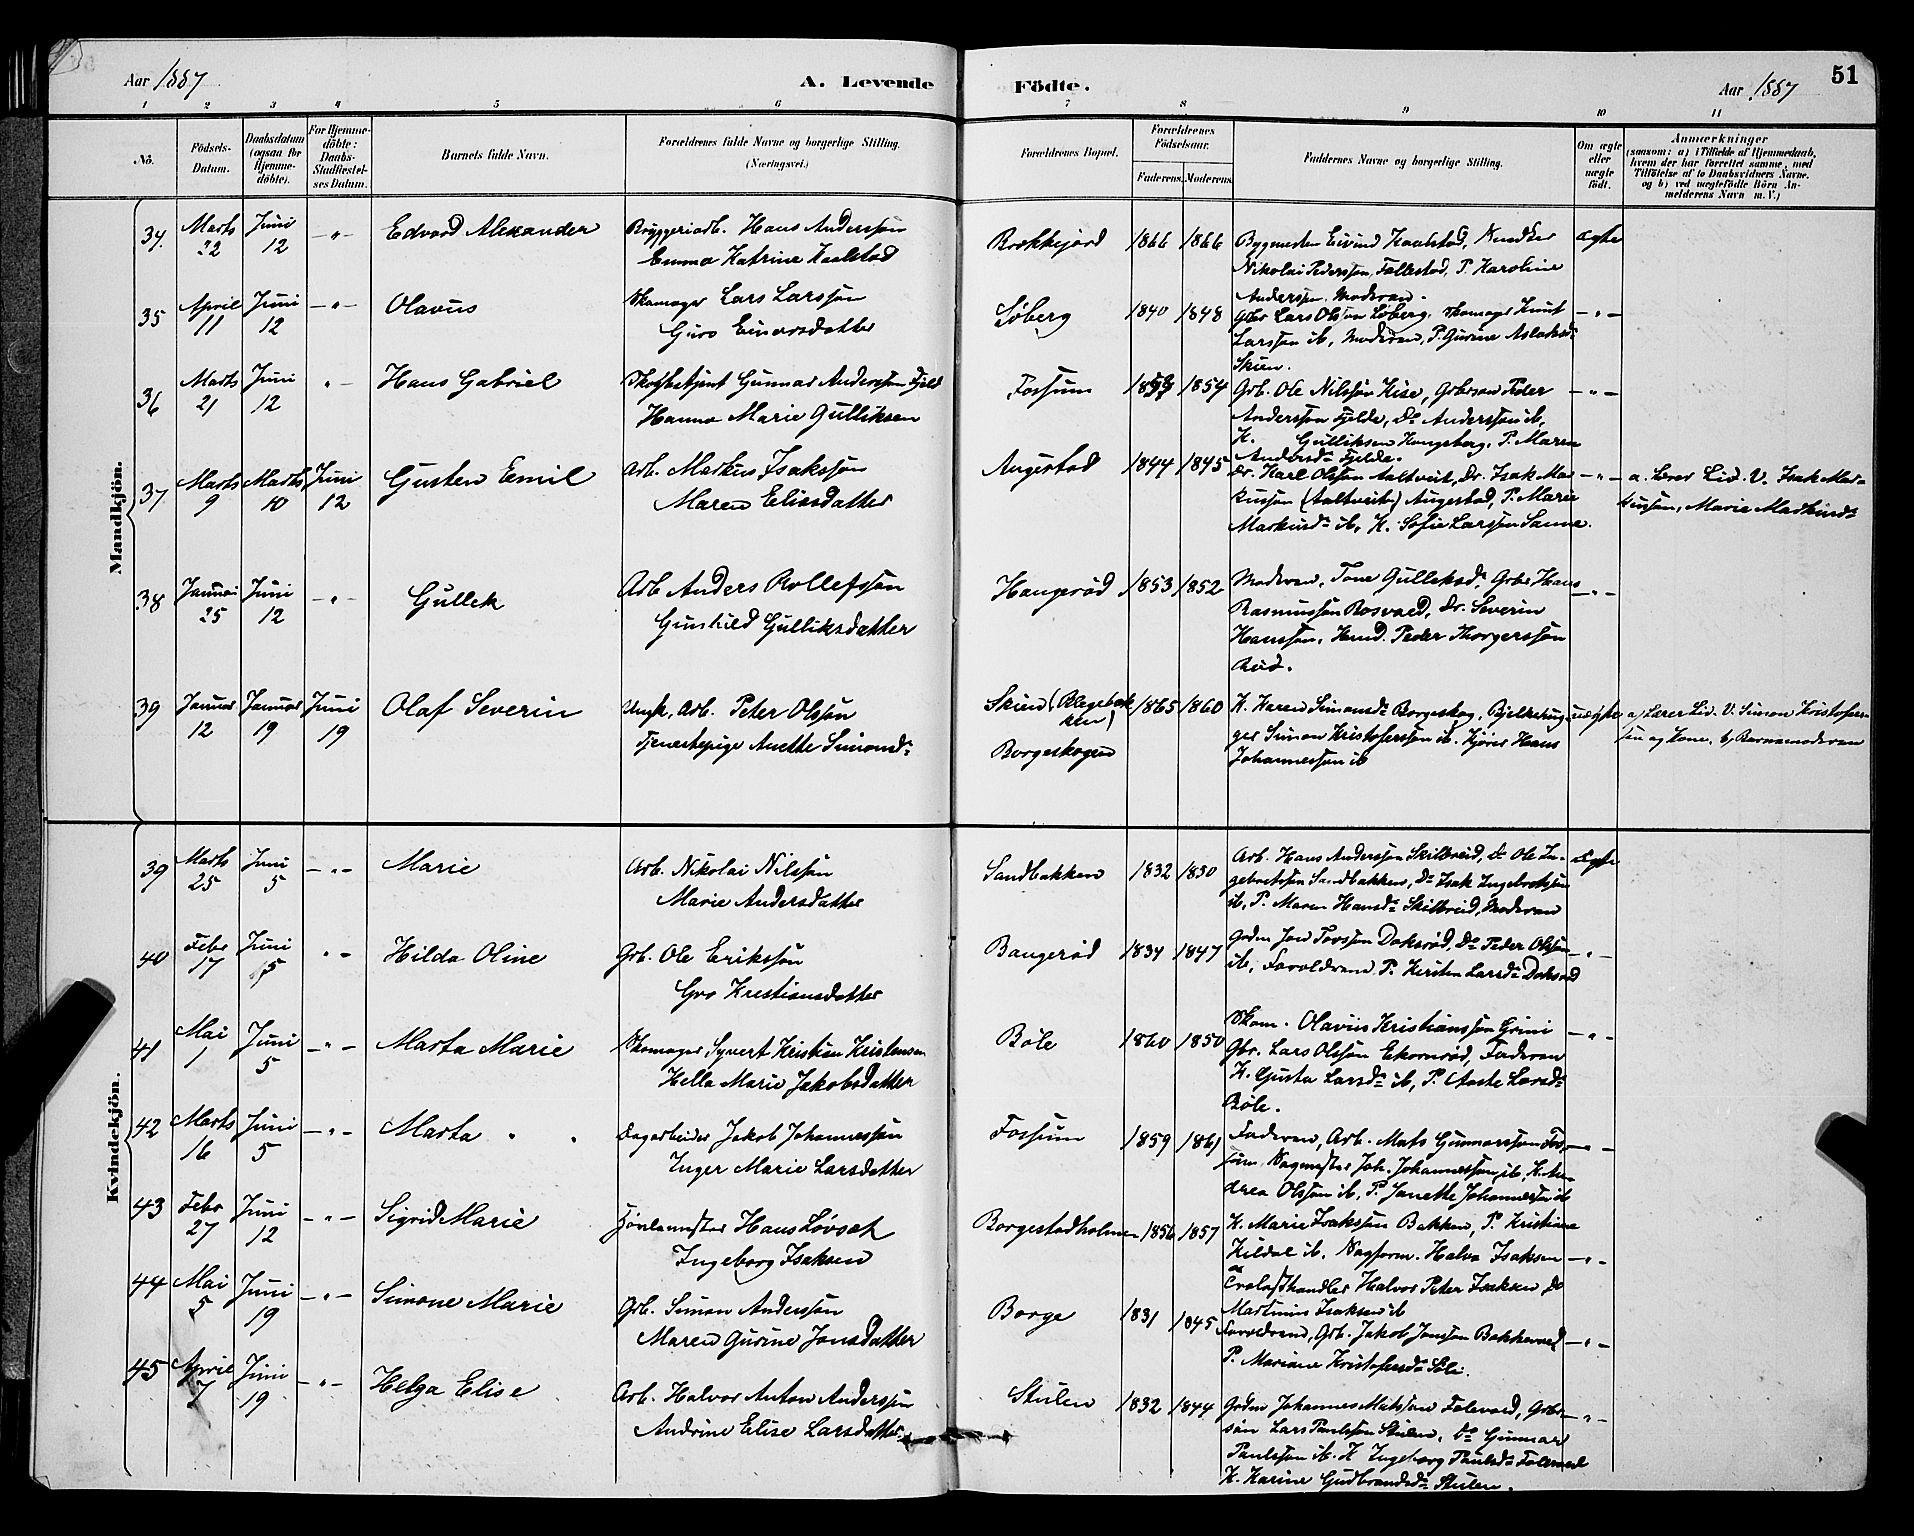 Aar 1887
A. Levende
Födte.
Aar 1887
51
1 2 3 4 5 6 7 8 9 10 11
No.
Födsels-
Datum.
Daabsdatum
(ogsaa for
Hjemme-
döbte).
For Hjemme-
döbte:
Daabs-
Stadfæstel-
ses Datum.
Barnets fulde Navn.
Forældrenes fulde Navne og borgerlige Stilling.
(Næringsvei.)
Forældrenes Bopæl.
Forældrenes
Födselsaar.
Faderens. Moderens.
Faddernes Navne og borgerlige Stilling.
Om ægte
eller
uægte
födt.
Anmærkninger
(saasom: a) i Tilfælde af Hjemmedaab,
hvem der har forrettet samme, med
Tilföielse af to Daabsvidners Navne,
og b) ved uægtefödte Börn An-
melderens Navn m. V.)
Mandkjön.
34. Marts 22 Juni 12 -"- Edvard Alexander
Bryggeriarb. Hans Anderssön
Emma Katrine Haalstad
Brækkejord 1866 1866
Bygmester Eivind Haalstad, Snedker
Nikolai Pederssen, Follestad, P. Karoline
Anderssen, Moderen.
ægte
35 April 11 Juni 12 -"- Olavus
Skomager Lars Larssön
Guro Einarsdatter
Löberg 1840 1848
Gbr Lars Olsson Löberg, Skomager Knut
Larssen ib, Moderen, P. Gurine Aslaksd.
Skien.
-"-
36 Marts 21 Juni 12 "- Hans Gabriel
Gunnar Anderssen Fjeld
Hanna Marie Gulliksen
Fossum 1854
Grb. Ole Nilssön Kise, Grbrsøn Peder
Anderssen Fjelde, Do Anderssön ib,
K. Gulliksen Kongsberg, P. Maren
Andersdr Fjelde.
-"-
37 Marts 9 Marts 10 Juni 12 Gusten Emil
Arb. Markus Isakssön
Maren Elisdatter
Augestad 1844 1845
Dr. Karl Olssøn Aaltveit, Dr. Isak Mar-
kussen (Aaltveit) Augestad, P. Marie
Markusdr ib, K. Sofie Larssen Sanne.
-"-
a. Lærer Lid. V. Isak Mar-
kussen, Marie Markusdr
38 Januar 25 Juni 12 -"- Gullek
Arb Anders Rollefssön
Gunhild Gulliksdatter
Haugerød 1853 1852
Moderen, Tone Gulleksd, Grbr Hans
Rasmussøn Rosvald, Dr. Severin
Hanssøn, Peder Thorgerssøn
-"-
39 Januar 12 Januar 19 Juni 19 Olaf Severin
Ungk. Arb. Peter Olssön
Tjenestepige Anette Simonsdr
Skien (
Borgeskogen
1865 1860
K. Karen Simonsdr Borgeskog,
Simon Kristoferssen ib. Hans
Johannessen ib
uægte
a) Lærer Lid. V. Simon Kristofers-
sen og Kone. b, Barnemoderen
Kvindekjön.
39 Marts 25 Juni 5 -"- Marie
Arb. Nikolai Nilssön
Marie Andersdatter
Sandbakken 1832 1850
Arb. Hans Anderssen Skilbreid, Do Ole In-
gebretssen Sandbakken, Do Isak Ingebretssen
ib, P. Maren Hansdr Skilbreid, Moderen
ægte
40 Febr 17 Juni 5 "- Hilda Oline
Grb. Ole Erikssön
Gro Kristiansdatter
Baugerød 1834 1847
Grdm Jon Tovssøn Doksrød, Do Peder Olssön
ib, Forældrene P. Kirsten Larsdr Doksrød
-"-
41 Mai 1 Juni 5 -"- Marta Marie
Skomager Syvert Kristian Kristensen
Hella Marie Jakobsdatter
Böle 1860 1850
Skom. Olavus Kristianssøn Grini
Gbr. Lars Olssøn Ekornrød, Faderen
K. Gusta Larsdr ib, P. Aaste Larsdr
Böle.
-"-
42 Marts 16 Juni 5 -"- Marta " "
Dagarbeider Jakob Johannessön
Inger Marie Larsdatter
Fossum 1859 1861
Faderen, Arb. Mats Gunnarssøn Fos-
sum, Joh. Johannessen ib, K. An-
drea Olssøn ib, P. Janette Johannessen ib
-"-
43 Febr 27 Juni 12 -"- Sigrid Marie
Hans Lövseth
Ingeborg Isaksen
Borgestadholmen 1856 1857
K. Marie Isakssøn Bakken, P. Kristiane
Kildal ib, Halvor Isaksen
Halvor Peter Isaksen Do
Martinus Isaksen ib
-"-
44 Mai 5 Juni 19 -"- Simone Marie
Grb. Simon Anderssön
Maren Gurine Jonsdatter
Borge 1831 1845
Forældrene, Grb. Jakob Jonssøn Bakkevold
P. Mariane Kristofersdr Soli.
-"-
45 April 7 Juni 19 -"- Helga Elise
Arb. Halvor Anton Anderssön
Andrine Elise Larsdatter
Stulen 1832 1844
Grdm Johannes Matssøn Folevard, Grbr-
søn Lars Paulssøn Stulen, Do Gunnar
Paulssøn ib. K Ingeborg Paulsdr
K. Karine Gudbrandsdr Stulen.
-"-